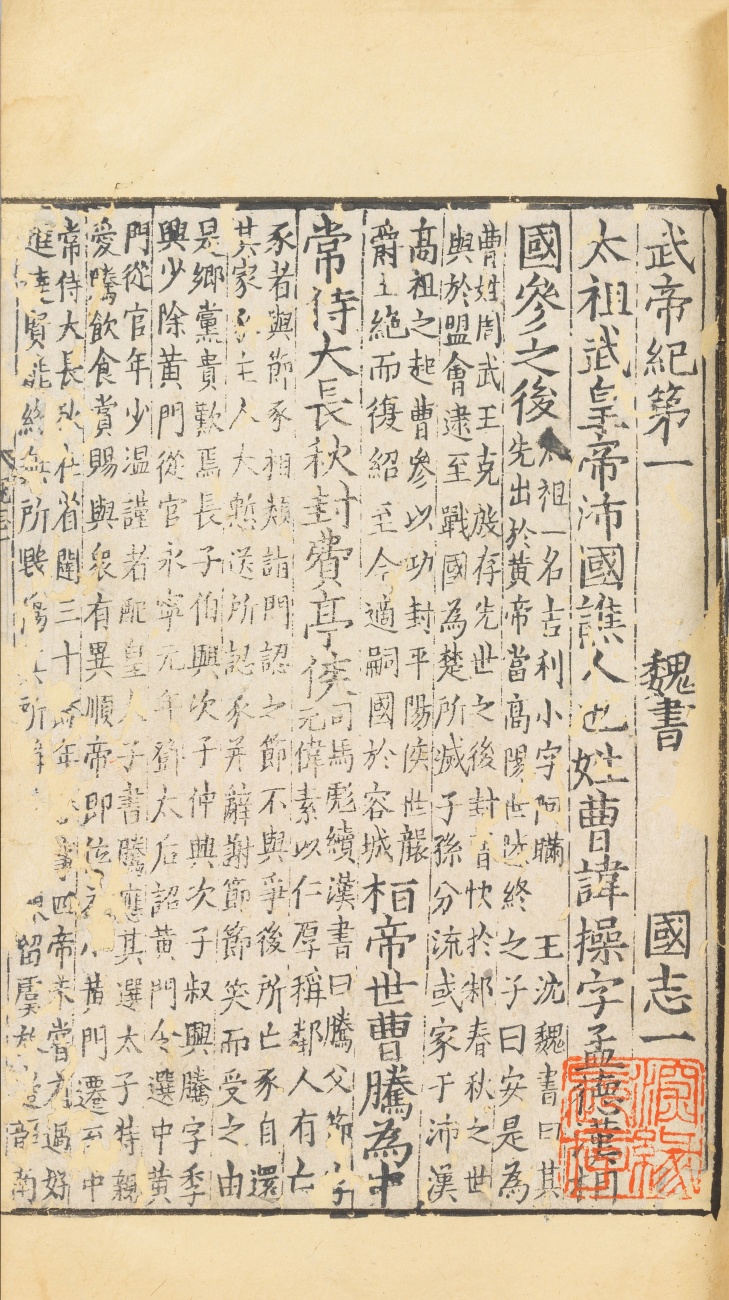 武帝紀第一 魏書 國志一
太祖武皇帝沛國譙人也姓曹諱操字孟德漢相
國參之後
太祖一名吉利小字阿瞞 王沈魏書曰其
先出於黃帝當高陽世陸終之子曰安是為
曹姓周武王克殷存先世之後封曹俠於邾春秋之世
與於盟會逮至戰國為楚所滅子孫分流或家于沛漢
高祖之起曹參以功封平陽侯世襲
爵土絕而復紹至今適嗣國於容城
桓帝世曹騰為中
常侍大長秋封費亭侯
司馬彪續漢書曰騰父節字
元偉素以仁厚稱鄰人有亡
豕者與節豕相類詣門認之節不與爭後所亡豕自還
其家豕主人大慙送所認豕并辭謝節節笑而受之由
是鄉黨貴歎焉長子伯興次子仲興次子叔興騰字季
興少除黃門從官永寧元年鄧太后詔黃門令選中黃
門從官年少溫謹者配皇太子書騰應其選太子特親
愛騰飲食賞賜與衆有異順帝即位為小黃門遷至中
常侍大長秋在省闥三十餘年歷事四帝未嘗有過好
進達賢能終無所毀傷其所稱 留虞放邊韶南